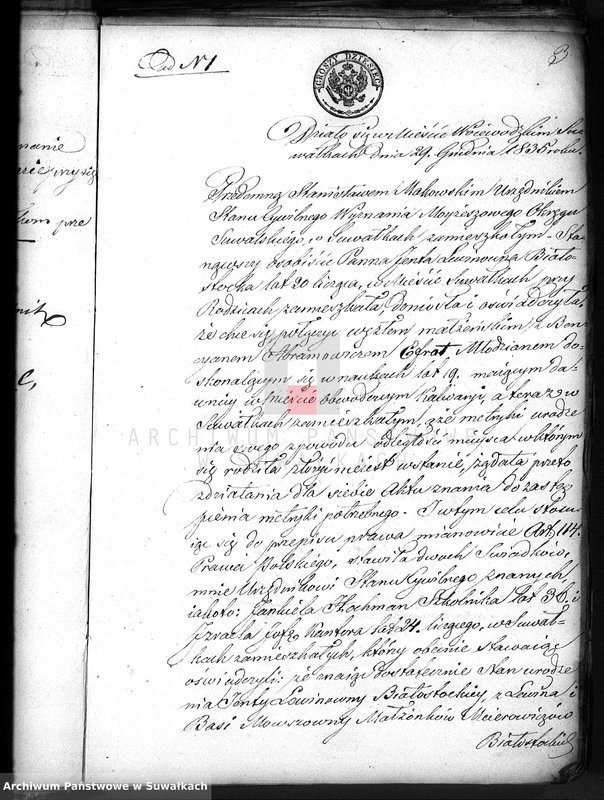 Ad N 1
3
GROSZY DZIESIĘĆ
Działo się w Mieście Wojewódzkim Su
wałkach dnia 29. Grudnia 1835 roku.
Przedemną Stanisławem Makowskim Urzędnikiem
Stanu Cywilnego Wyznania Moyżeszowego Okręgu
Suwalskiego, w Suwałkach zamieszkałym - Sta-
nąwszy osobiście Panna Jenta Lewinowna Biało-
stocka lat 20 licząca, w Mieście Suwałkach przy
Rodzicach zamieszkała, doniosła i oświadczyła,
że chce się połączyć węzłem małżeńskim z Ben
cyanem Abramowiczem Efrat, Młodzianem do-
skonalącym się w naukach lat 19. mającym da-
wniey w Mieście obwodowym Kalwaryi, a teraz w
Suwałkach zamieszkałym, że metryki urodze
nia swego z powodu odległości mieysca w którym
się rodziła złożyć nie iest w stanie, żądała przeto
zdziałania dla siebie Aktu znania do zastą-
pienia metryki potrzebnego - I w tym celu stosu
iąc się do przepisu prawa mianowicie Art: 114.
Prawa Polskiego, stawiła dwoch Swiadków,
mnie Urzędnikowi Stanu Cywilnego znanych
iakoto: Szkolnika lat 36. i
Izraela Kantora lat 24. liczącego, w Suwał-
kach zamieszkałych, który obecnie stawaiąc
oświadczyli: że znaiąc dostatecznie Stan urodze
nia Jenty Lewinowny Białostockiey, z Lewina i
Basi Mowszowny Małżonków Meierowiczów
Białostockich
nanie
przy się
kom prze
ARCHIWUM PAŃSTWOWE
W SUWAŁKACH
Archiwum Państwowe w Suwałkach